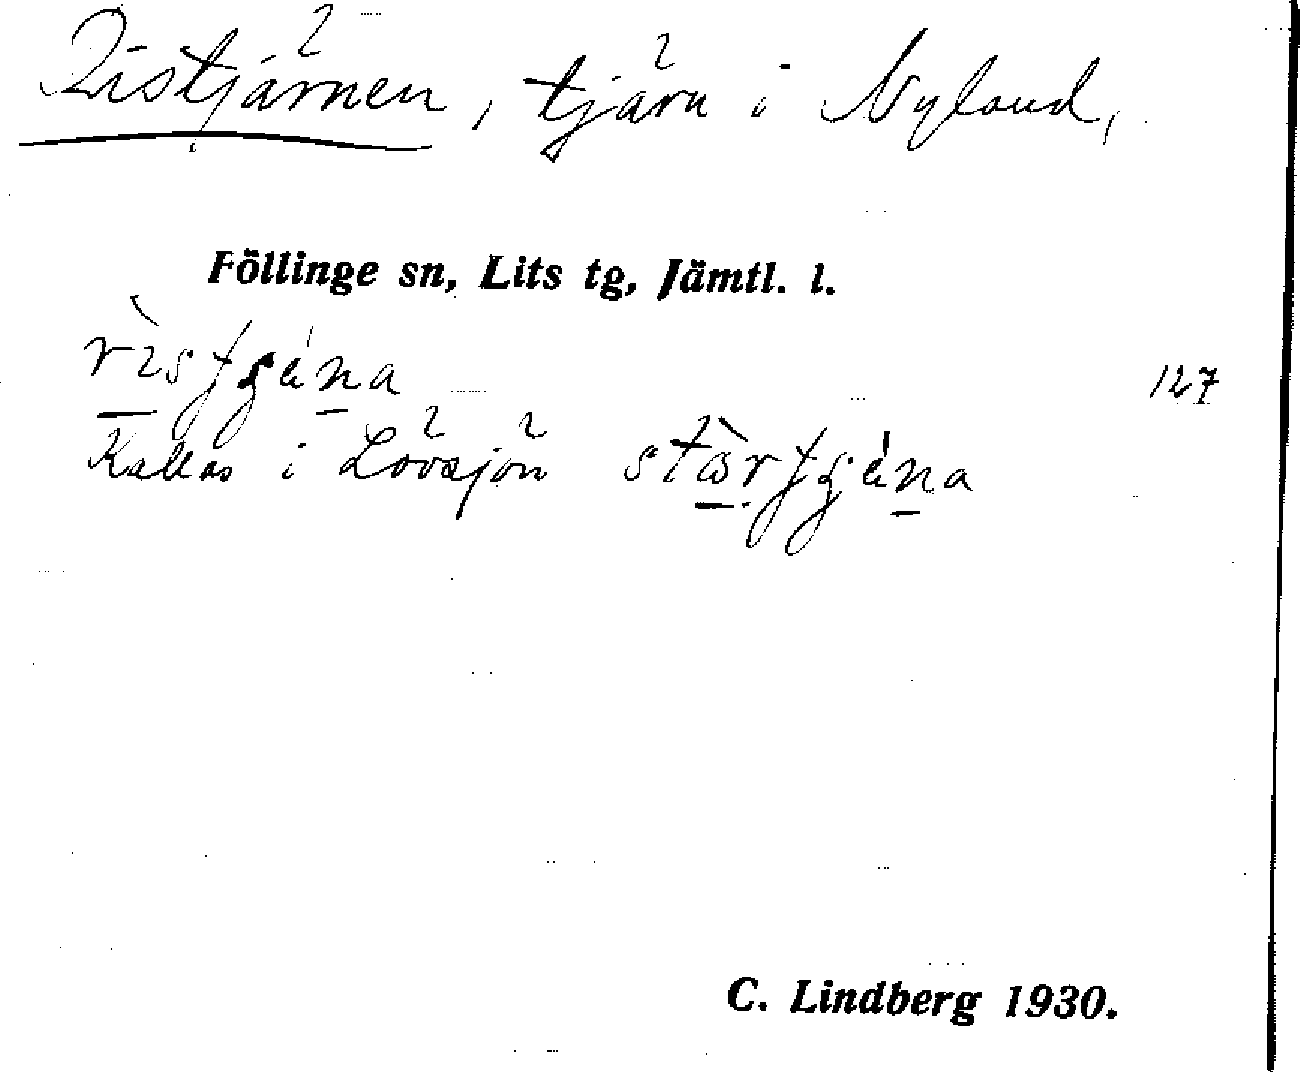 Ristjärnen, tjärn i Nyland,
Föllinge sn, Lits tg, Jämtl. l.
127
Kallas i Lövsjön
C. Lindberg 1930.